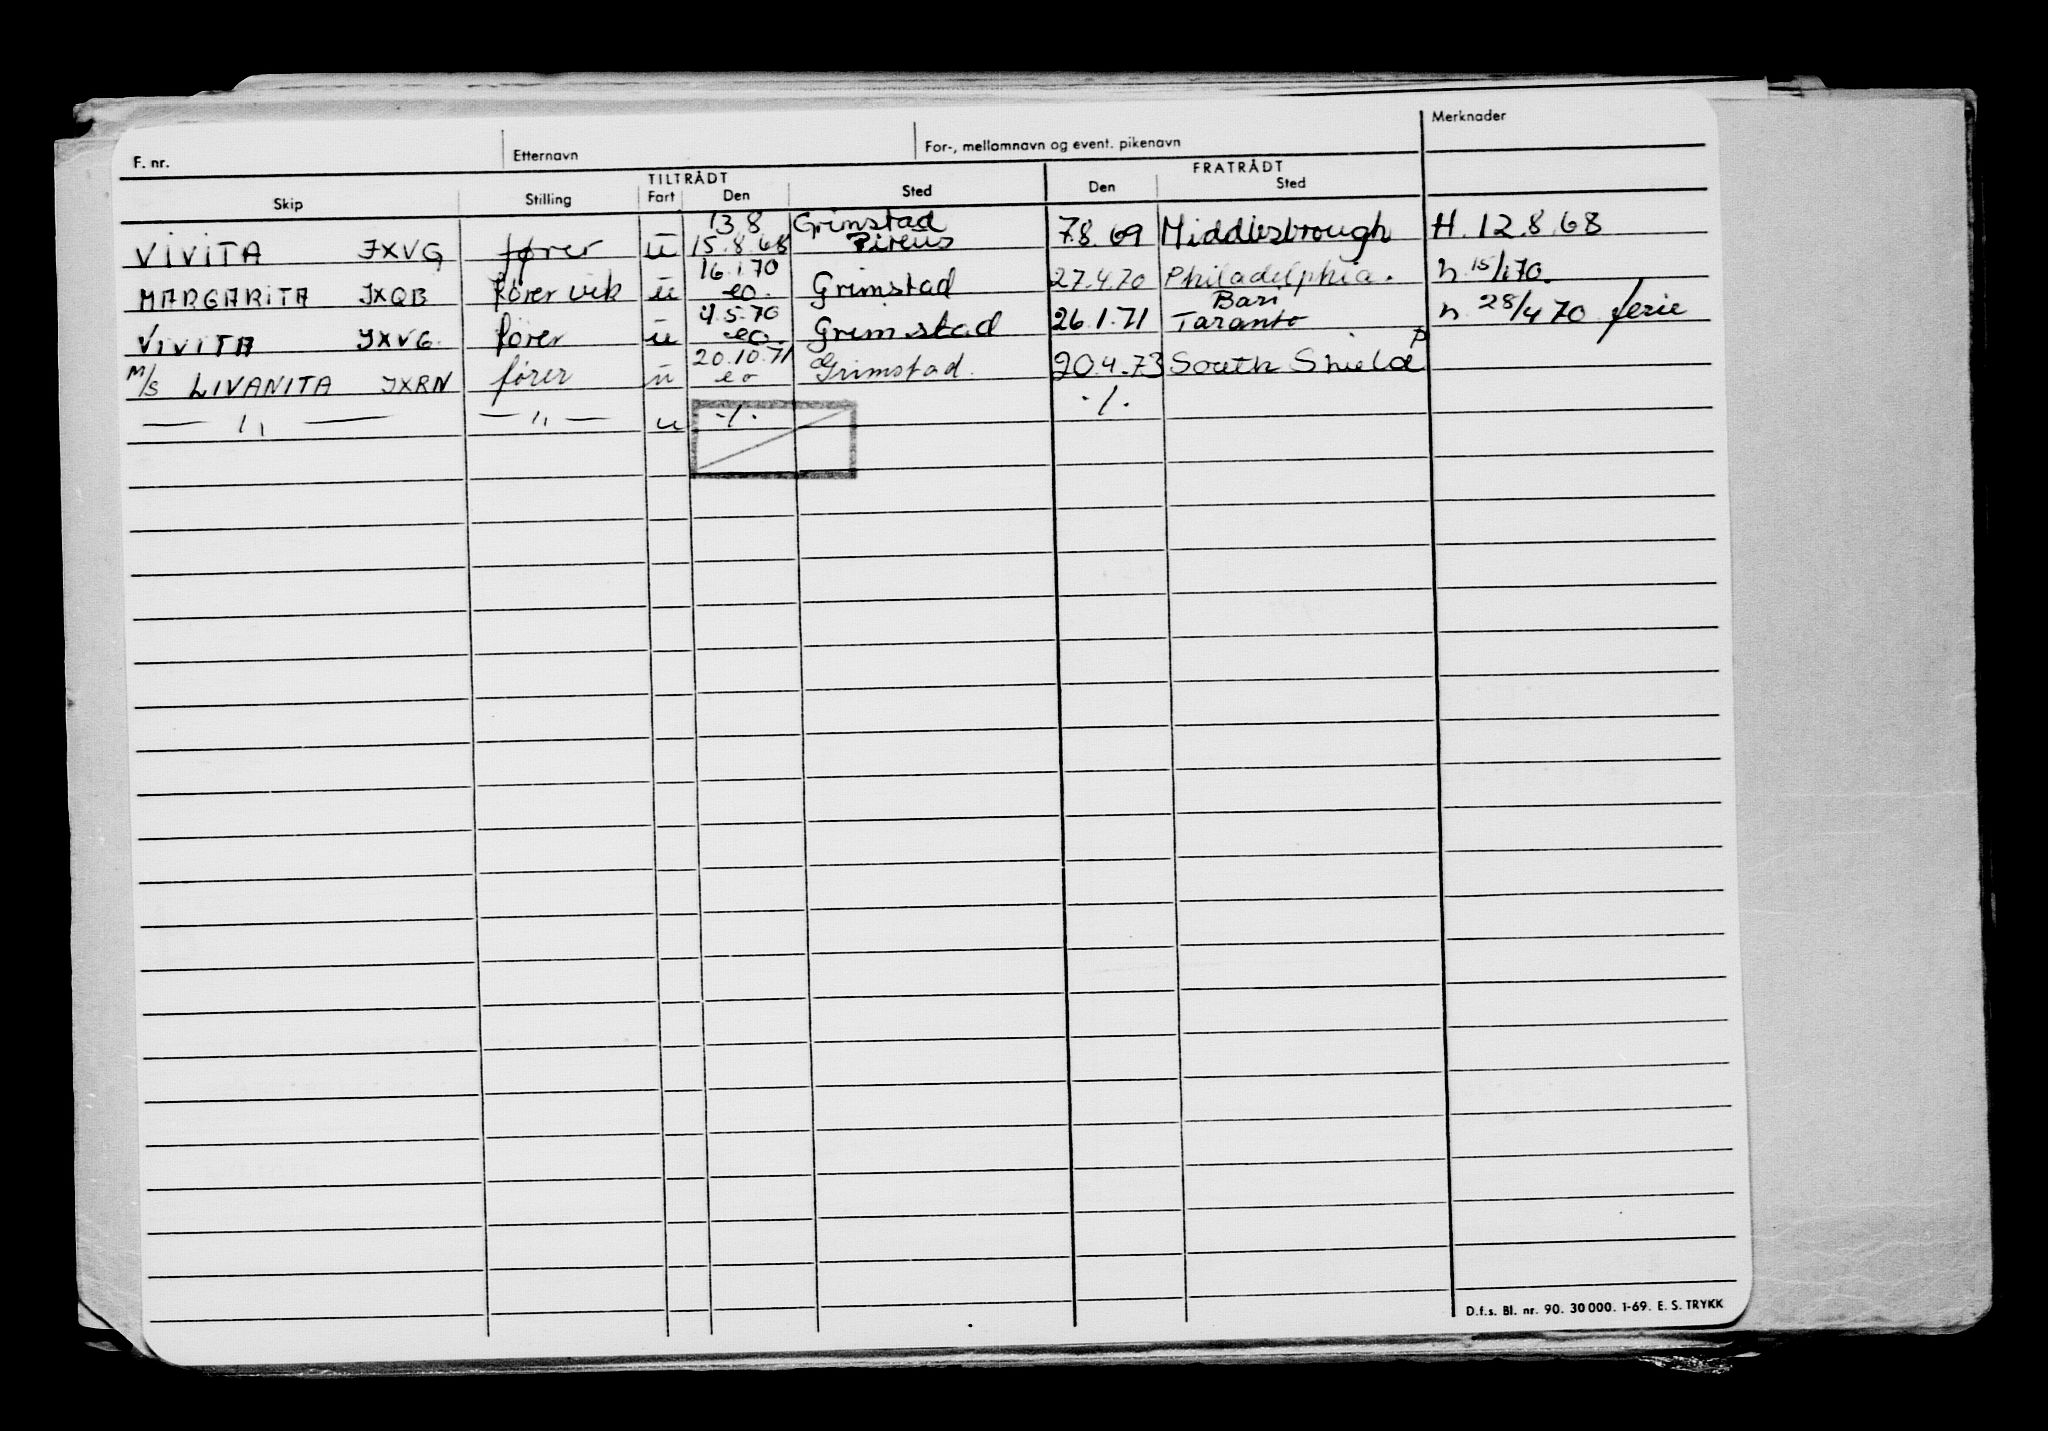 F. nr. Etternavn For-, mellomnavn og event. pikenavn Merknader
TILTRÅDT FRATRÅDT
Skip Stilling Fart Den Sted Den Sted
13.8 Grimstad
VIVITA JXVG fører u 15.8.68 Pireus 7.8.69 Middlesbrough H. 12.8.68
16.1.70
MARGARITA JXQB fører vik u eo. Grimstad 27.4.70 Philadelphia. h. 15/1 70.
4.5.70 Bari
VIVITA JXVG. fører u eo. Grimstad 26.1.71 Taranto h. 28/4 70 ferie
20.10.71
M/S LIVANITA JXRN fører u eo Grimstad. 20.4.73 South Shields
— " — — " — u ./. ./.
D.f.s. Bl. nr. 90. 30 000. 1-69. E. S. TRYKK